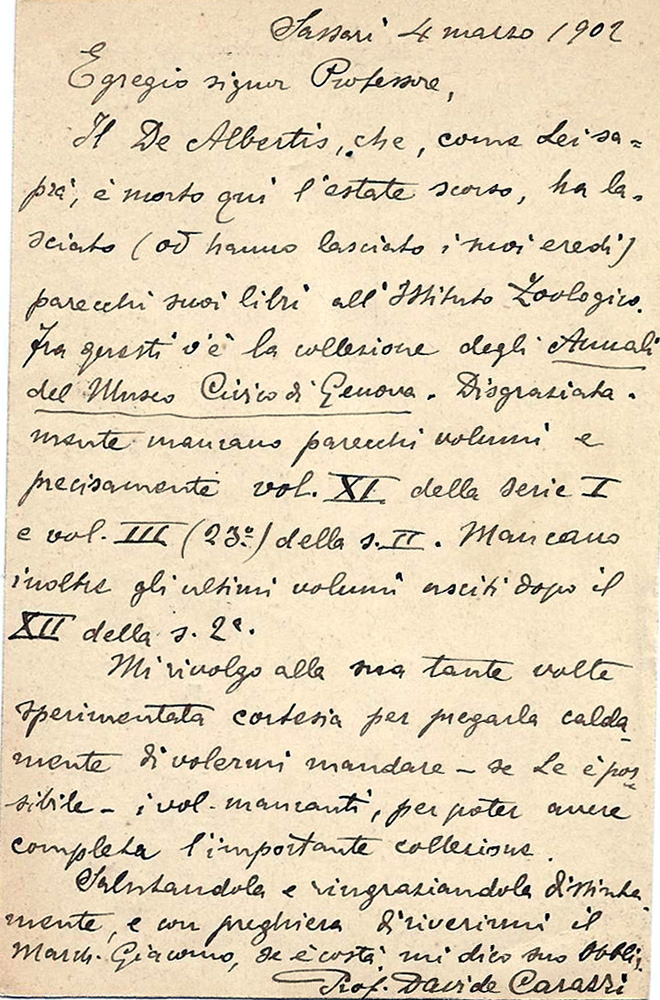 Sassari 4 marzo 1902
Egregio signor Professore,
Il De Albertis, che, come Lei sa=
prà, è morto qui l'estate scorso, ha la-
sciato (od hanno lasciato i suoi eredi)
parecchi suoi libri all'Istituto Zoologico.
Fra questi v'è la collezione degli Annali
del Museo Civico di Genova. Disgraziata-
mente mancano parecchi volumi e
precisamente vol. XI della serie I
e vol. III (23º) della s. II. Mancano
inoltre gli ultimi volumi usciti dopo il
XII della s. 2ª.
Mi rivolgo alla sua tante volte
sperimentata cortesia per pregarla calda-
mente di volermi mandare - se Le è pos-
sibile - i vol. mancanti, per poter avere
completa l'importante collezione.
Salutandola e ringraziandola distinta
mente, e con preghiera di riverirmi il
March. Giacomo, se è costà mi dico suo obbli.
Prof. Davide Carazzi